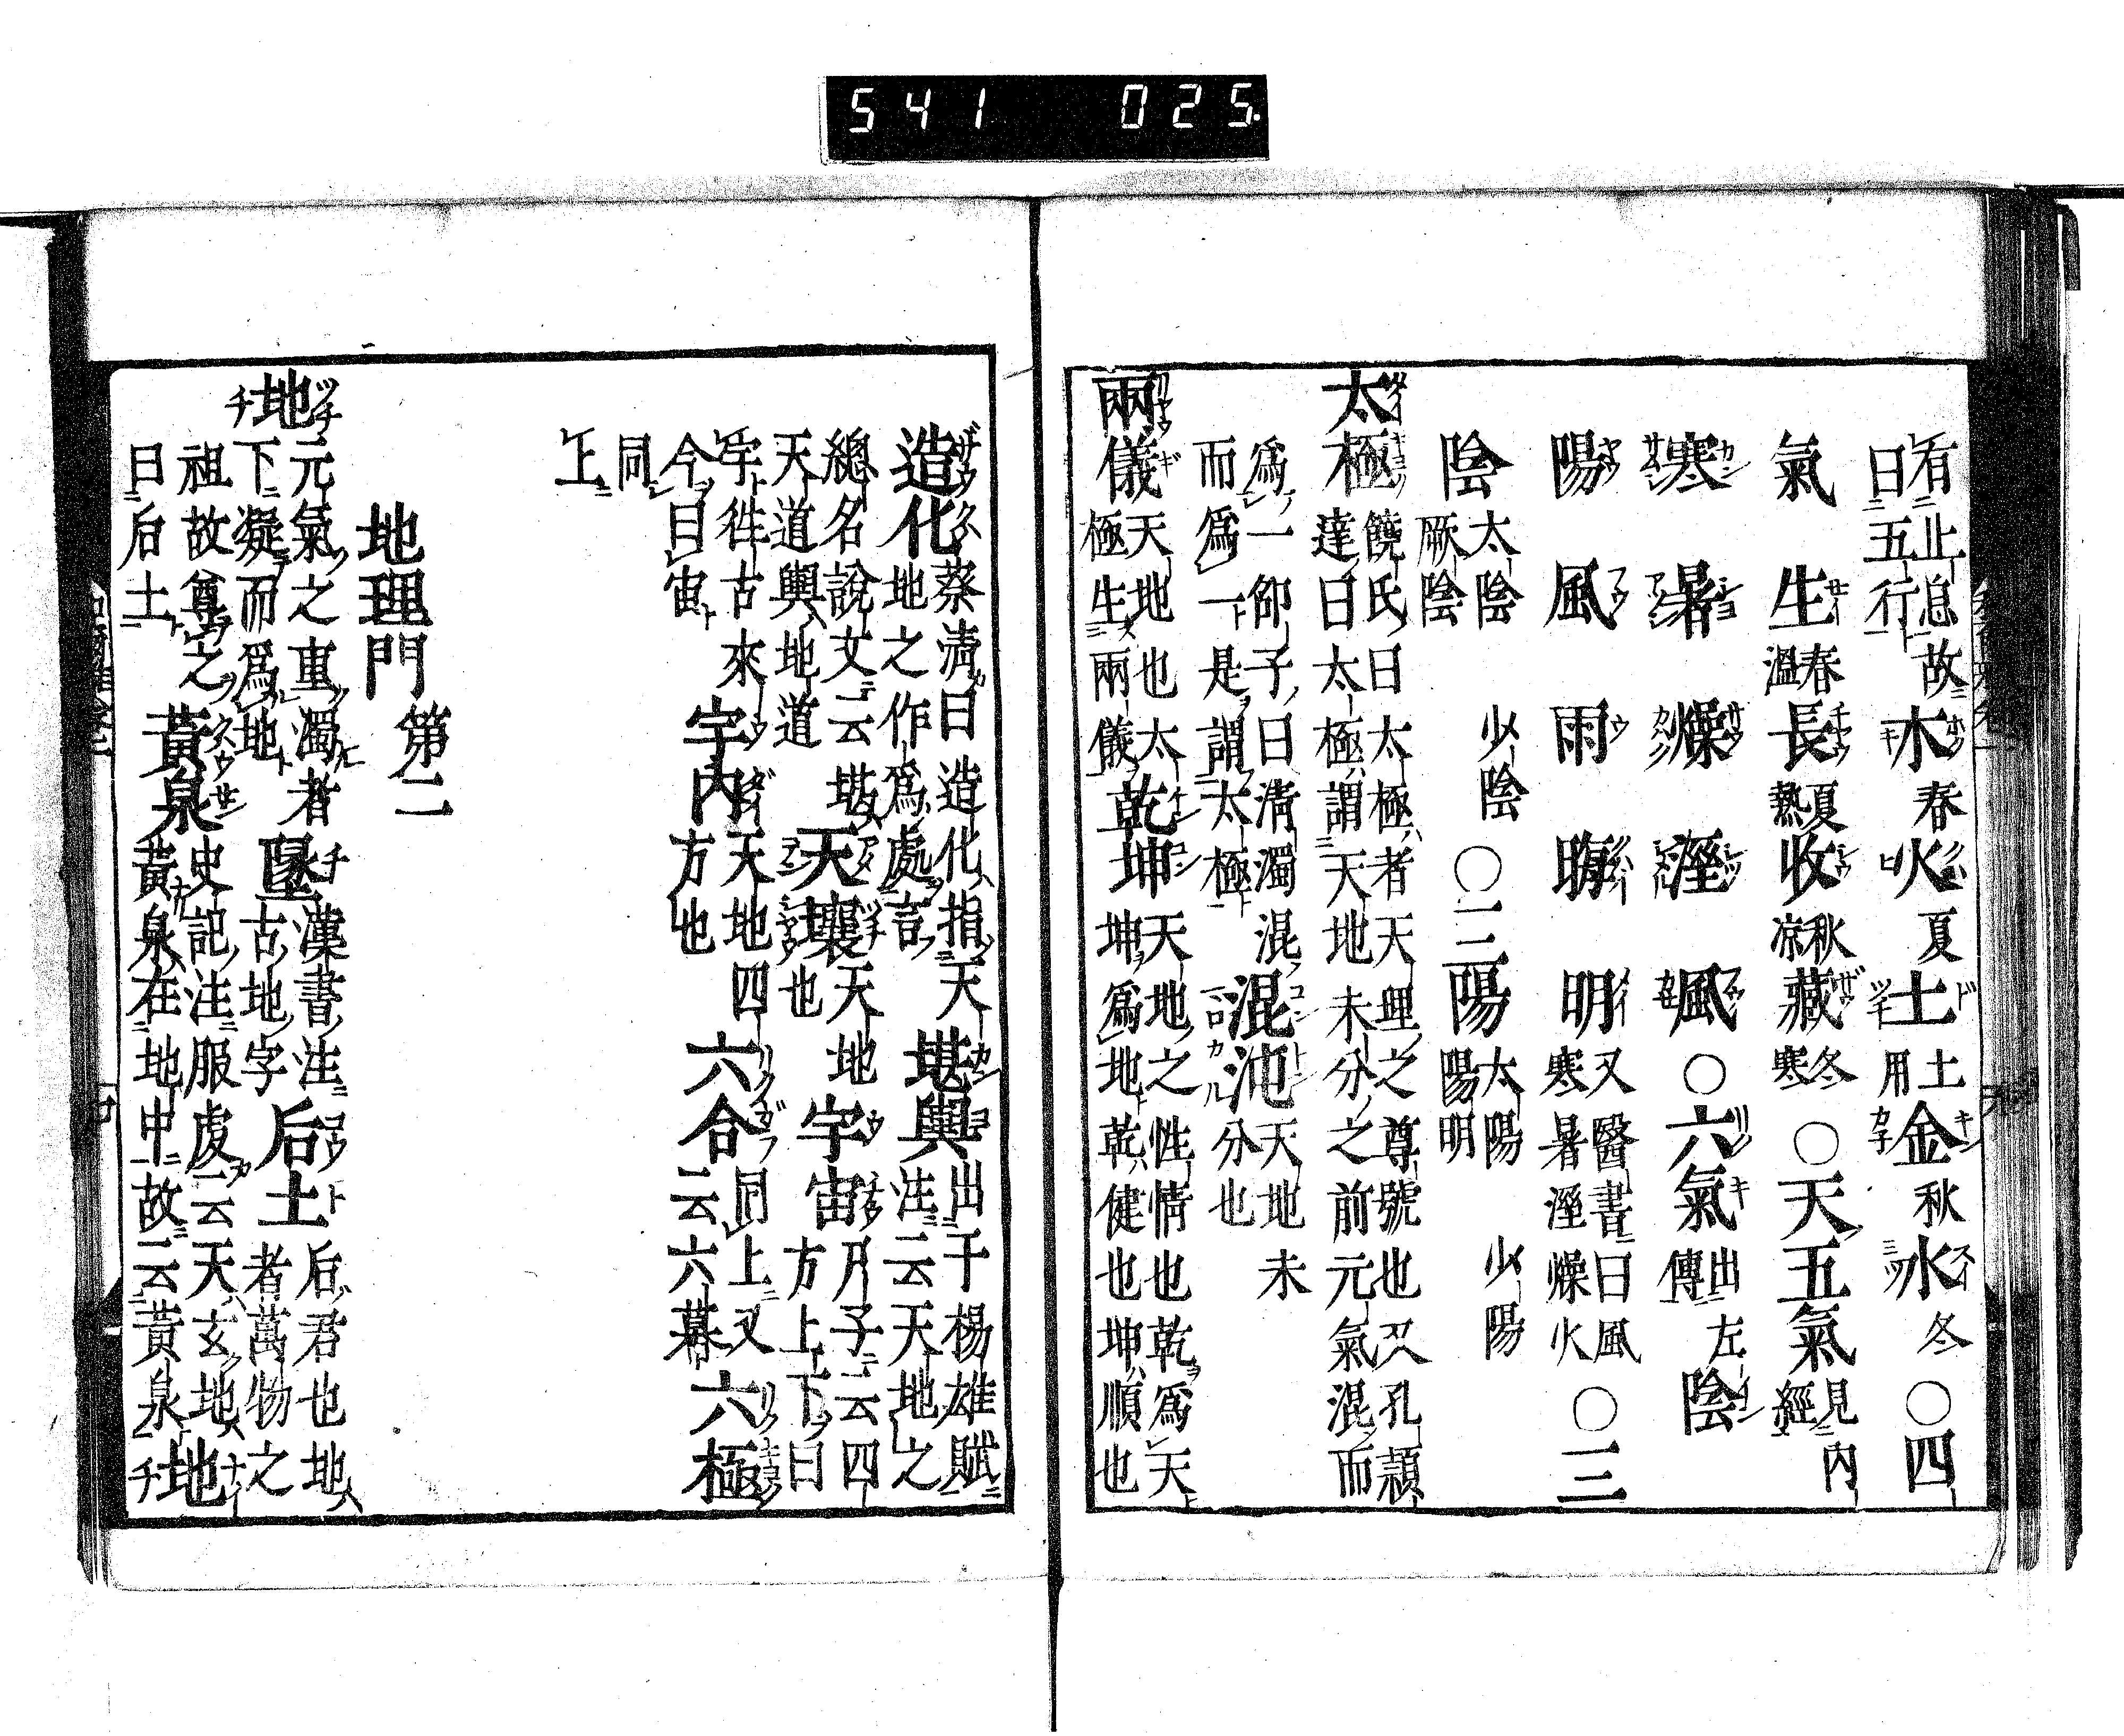 541 025.
有止息故
曰五行
木春火夏土土用金秋水冬〇四
氣生春溫長夏熱收秋涼藏冬寒〇天五氣見內經
寒暑燥溼風〇六氣出左傳陰
陽風雨晦明又醫書曰風寒暑溼燥火〇三
陰太陰 少陰 厥陰〇三陽太陽 少陽 陽明
太極饒氏曰太極者天理之尊號也又孔穎
達曰太極謂天地未分之前元氣混而
爲一仰子曰清濁混
而爲一是謂太極
混沌天地未分也
兩儀天地也太極生兩儀
乾坤天地之性情也乾爲天
坤爲地乾健也坤順也
造化蔡淸曰造化指天
地之作爲處言
堪輿出于楊雄賦
注云天地之
總名說文云堪
天道輿地道
天壤天地也
宇宙尸子云四方上下曰
宇徃古來今曰宙
宇內天地四方也
六合同上又云六幕
六極同上
地理門第二
地元氣之重濁者
下凝而爲地
墬漢書注古地字
后土后君也地者萬物之
祖故尊之曰后土
黃泉史記注服虔云天玄地
黃泉在地中故云黃泉
地